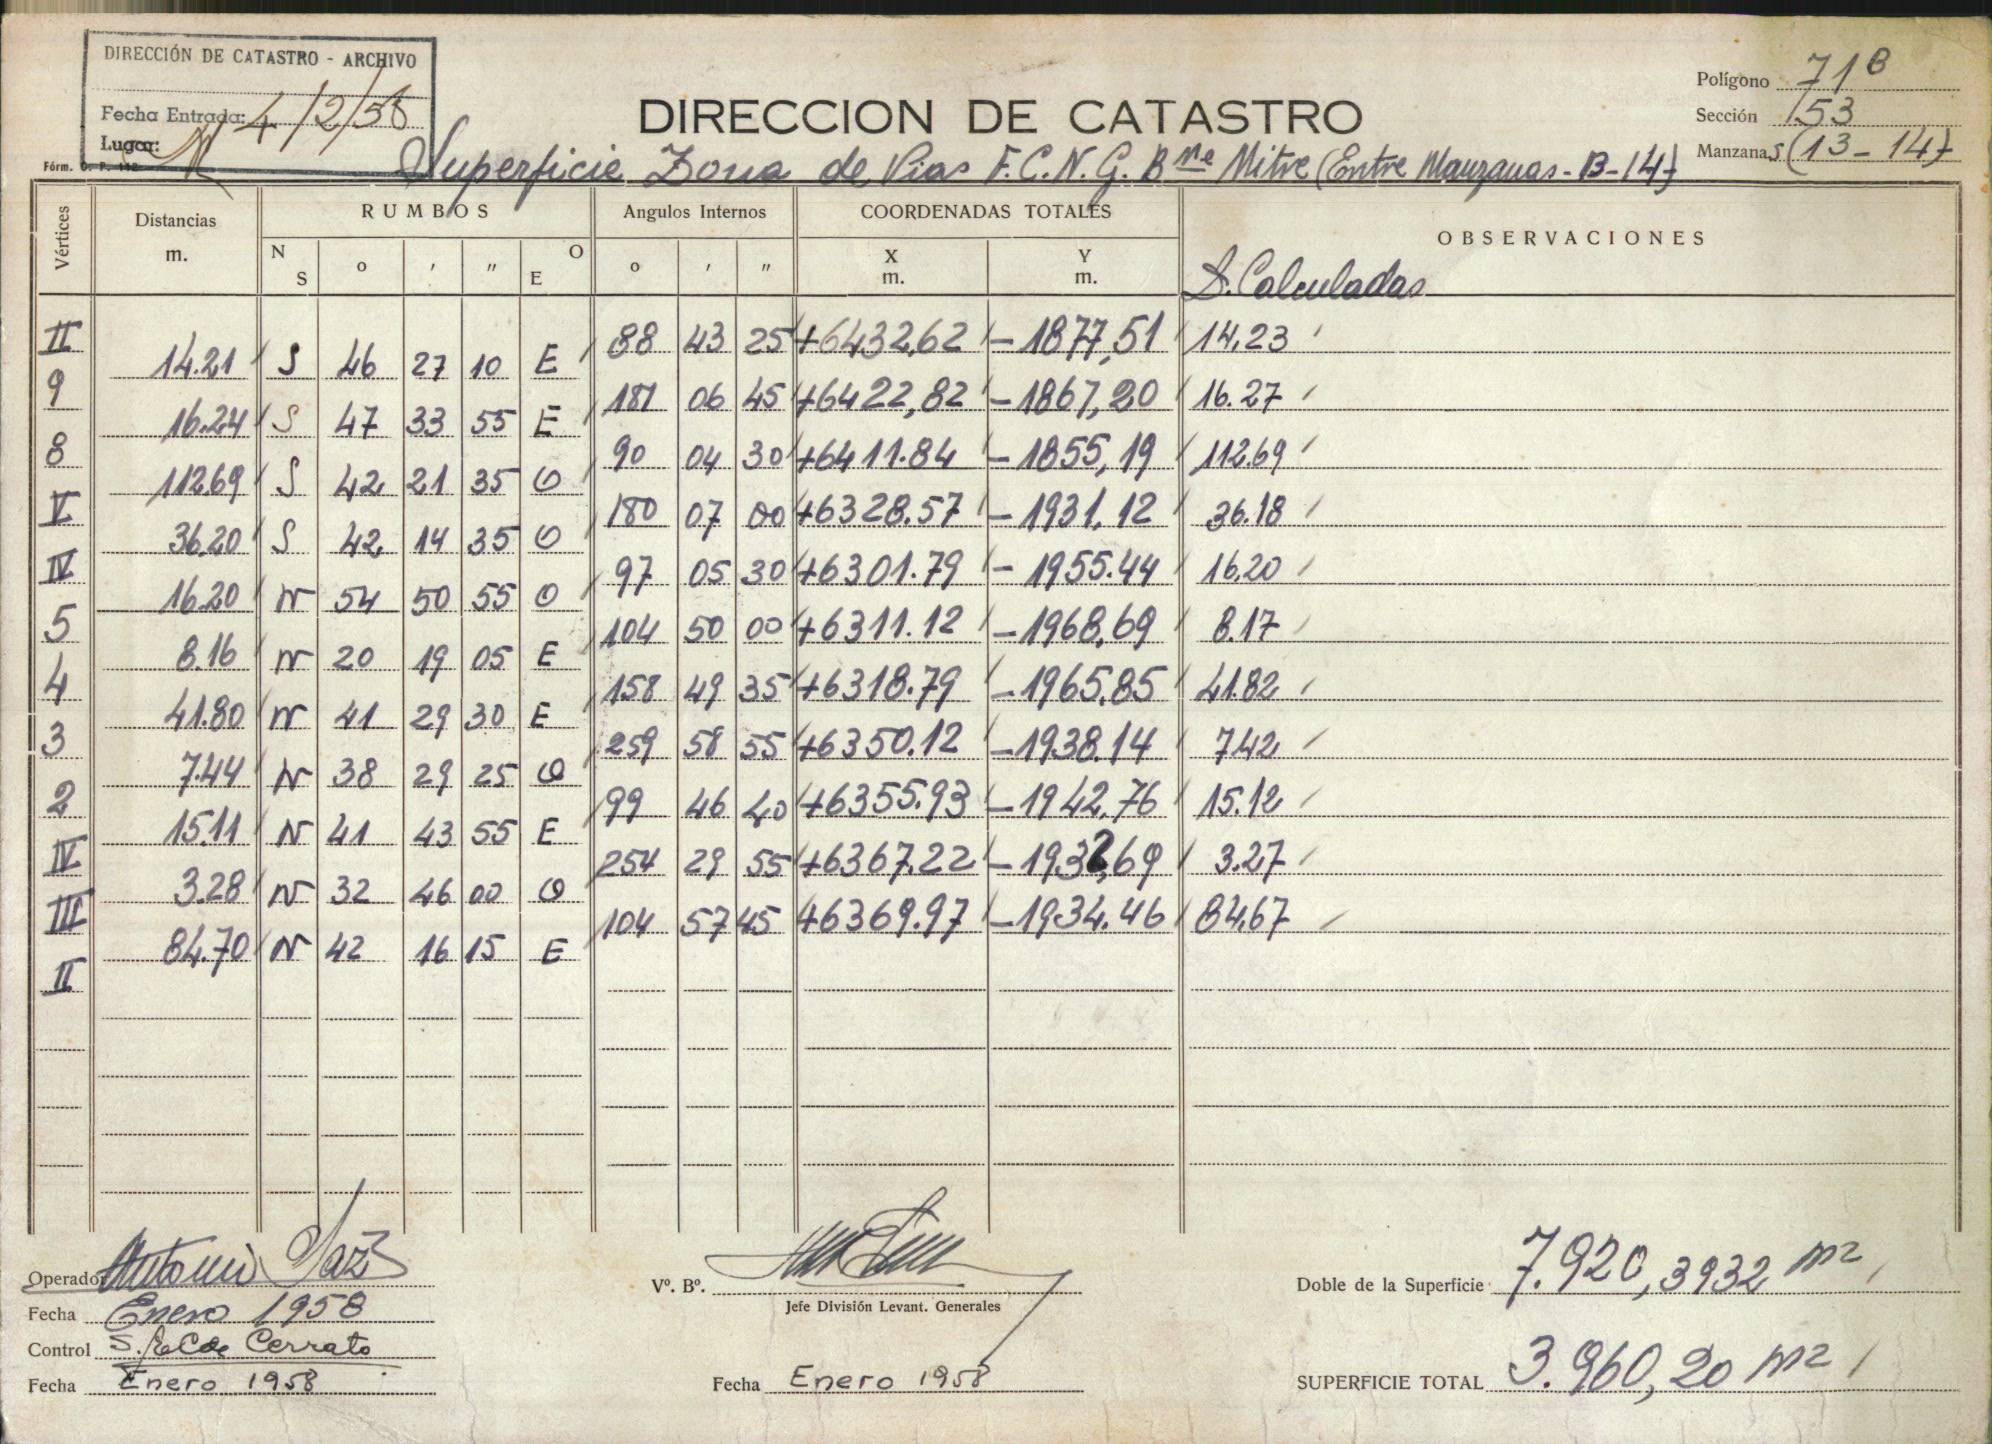 DIRECCIÓN DE CATASTRO - ARCHIVO
Fecha Entrada: 4/2/58
Lugar:
Fórm. C. P. 112
DIRECCION DE CATASTRO
Polígono 71 B
Sección 153
Manzanas (13-14)
Superficie Zona de Vias F.C.N.G. Bme Mitre (Entre Manzanas - 13-14)
Vértices Distancias m. RUMBOS Angulos Internos COORDENADAS TOTALES OBSERVACIONES
N S o ' " E O o ' " X m. Y m. D. Calculadas
II 88 43 25 +6432,62 -1877,51 14,23
14.21 S 46 27 10 E
9 181 06 45 +6422,82 -1867,20 16.27
16.24 S 47 33 55 E
8 90 04 30 +6411.84 -1855,19 112.69
112.69 S 42 21 35 O
V 180 07 00 +6328.57 -1931.12 36.18
36.20 S 42 14 35 O
IV 97 05 30 +6301.79 -1955.44 16,20
16.20 N 54 50 55 O
5 104 50 00 +6311.12 -1968,69 8.17
8.16 N 20 19 05 E
4 158 49 35 +6318.79 -1965.85 41.82
41.80 N 41 29 30 E
3 259 58 55 +6350.12 -1938.14 7.42
7.44 N 38 29 25 O
2 99 46 40 +6355.93 -1942,76 15.12
15.11 N 41 43 55 E
IV 254 29 55 +6367.22 -1932,69 3.27
3.28 N 32 46 00 O
III 104 57 45 +6369.97 -1934.46 84,67
84.70 N 42 16 15 E
II
Operador Antonio Saz
Fecha Enero 1958
Control S. Cerrato
Fecha Enero 1958
Vº. Bº.
Jefe División Levant. Generales
Fecha Enero 1958
Doble de la Superficie 7.920,3932 m2
SUPERFICIE TOTAL 3.960,20 m2